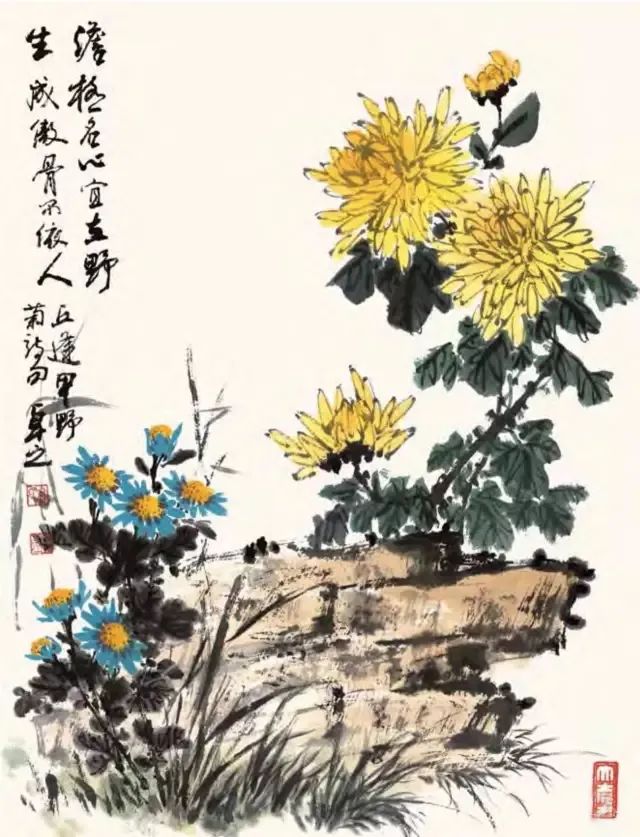 澹极名心宜在野
生成傲骨不依人
丘逢甲野
菊诗句